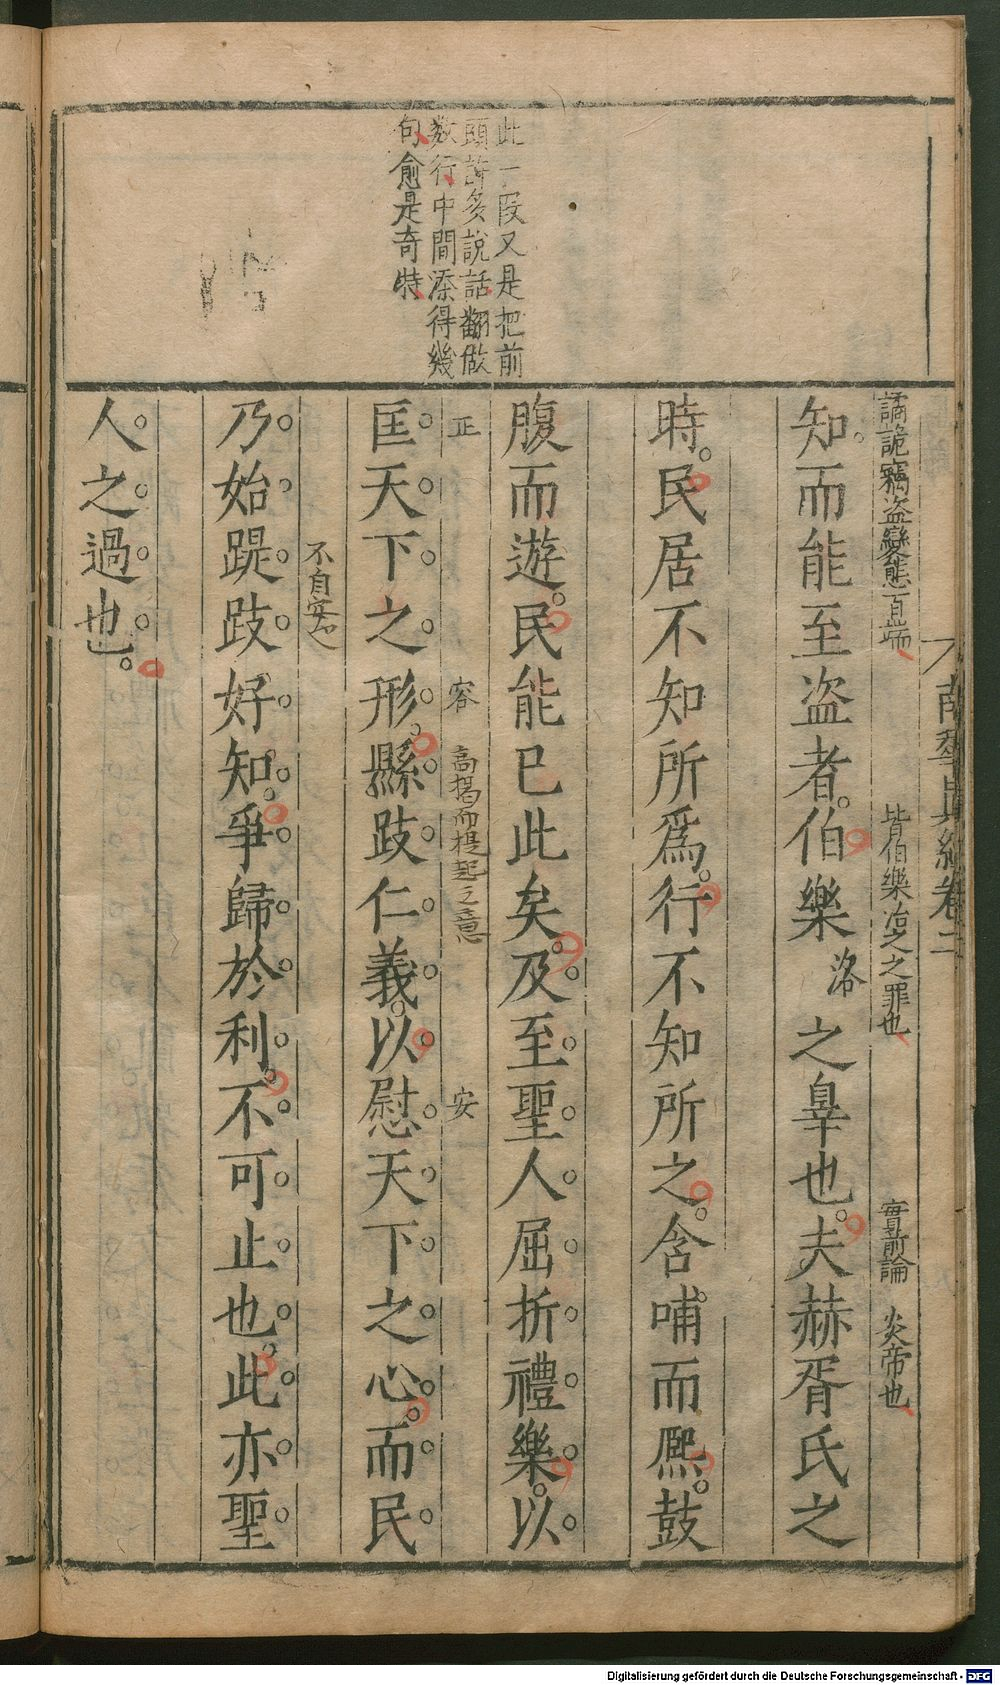 此一段又是把前
頭許多說話翻做
数行中間添得幾
句愈是奇特
南華眞經卷二
譎詭竊盗變態百端
皆伯樂治之之罪也
實前論
炎帝也
知而能至盗者伯樂
洛
之辠也夫赫胥氏之
時民居不知所爲行不知所之含哺而熈鼓
腹而遊民能已此矣及至聖人屈折禮樂以
正
容
高揭而提起之意
安
匡天下之形縣跂仁義以慰天下之心而民
不自安
乃始踶跂好知爭歸於利不可止也此亦聖
人之過也
Digitalisierung gefördert durch die Deutsche Forschungsgemeinschaft - DFG